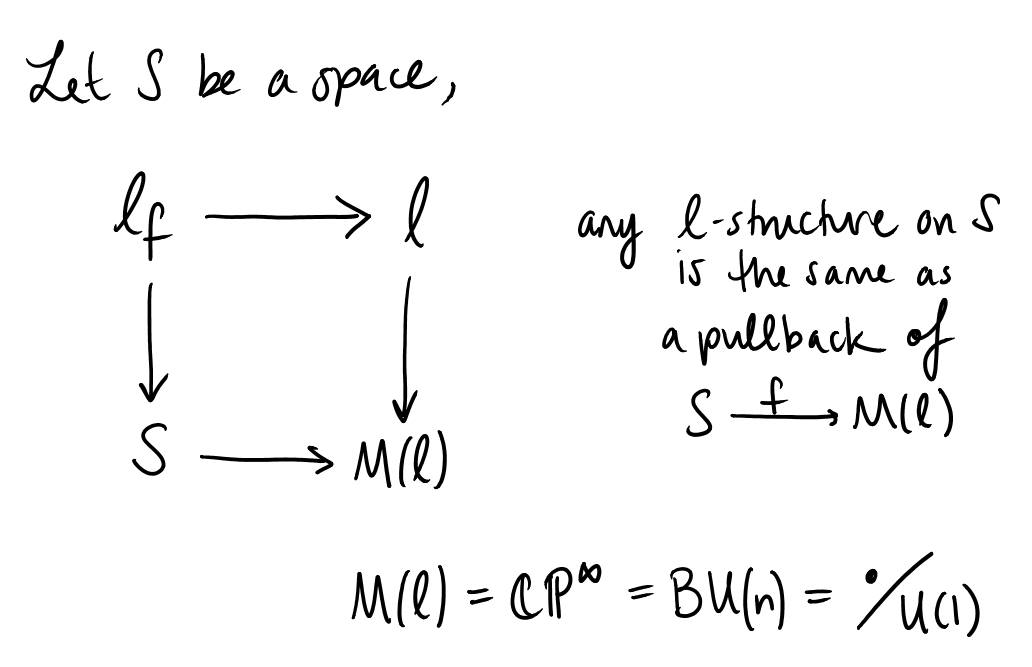 Let S be a space,
ℓf ⟶ ℓ
any ℓ-structure on S
is the same as
a pullback of
S —f→ M(ℓ)
S ⟶ M(ℓ)
M(ℓ) = ℂP^∞ = BU(n) = •/U(1)